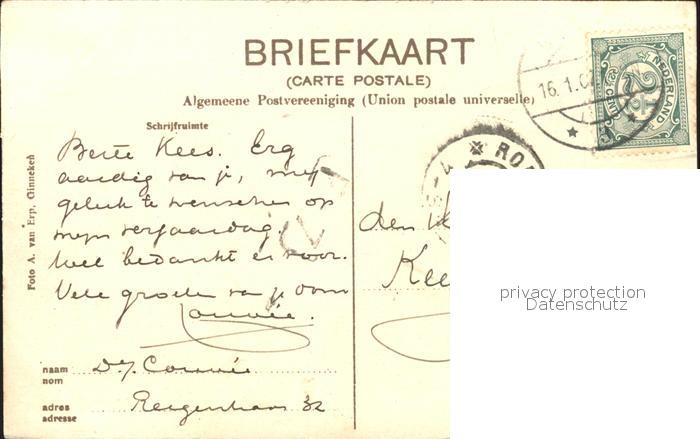 BRIEFKAART
(CARTE POSTALE)
Algemeene Postvereeniging (Union postale universelle)
NEDERLAND
2½
CENT
16.1.0
RO
Schrijfruimte
Beste Kees. Erg
aardig van je, mij
geluk te wenschen op
mijn verjaardag.
Wel bedankt er voor.
Vele groeten van je oom
Couvée.
naam
nom
Couvée
adres
adresse
32
den
Kee
Foto A. van Erp, Ginneken
privacy protection
Datenschutz